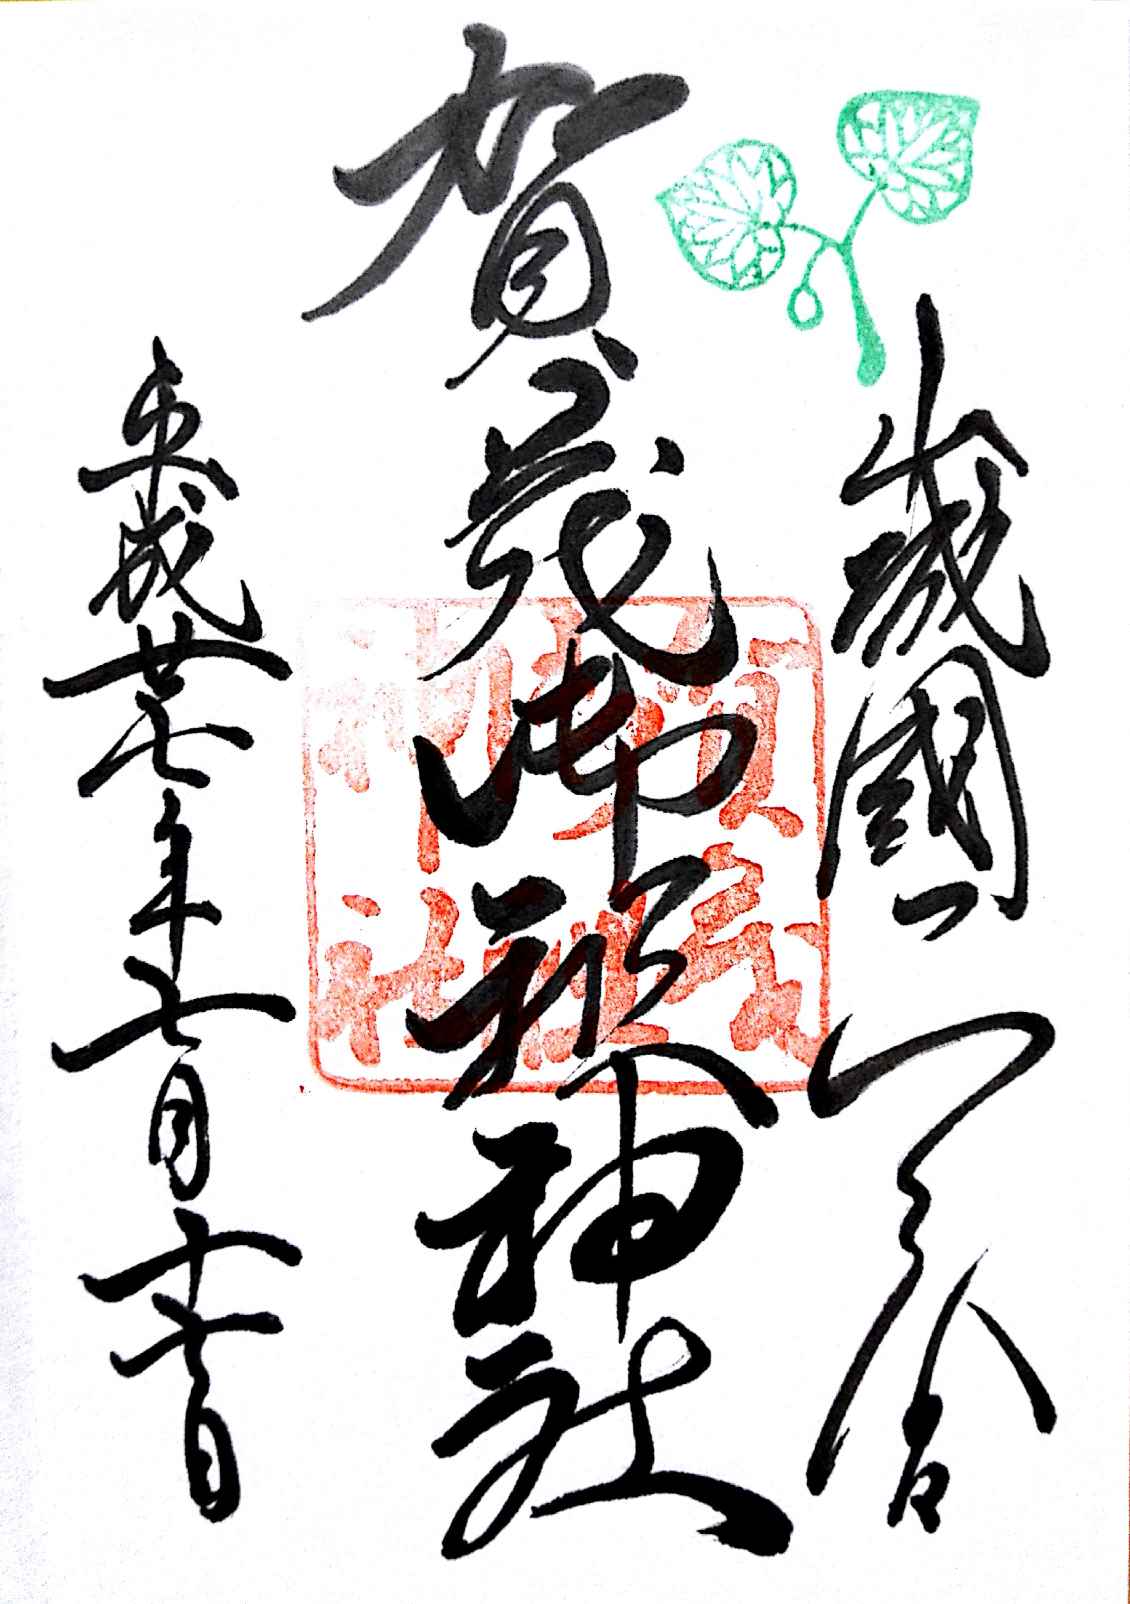 山城國一之宮
賀茂御祖神社
賀茂
御祖
神社
平成廿七年七月十七日